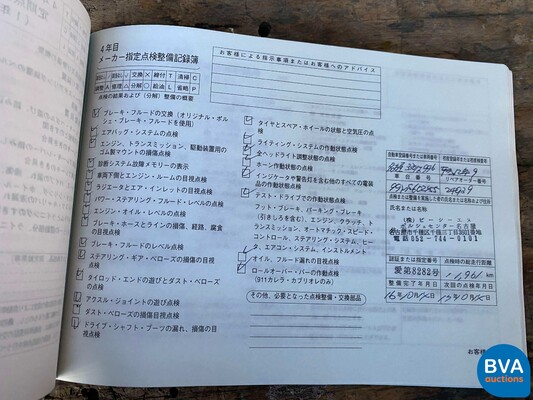 4年目
メーカー指定点検整備記録簿
お客様による指示事項またはお客様へのアドバイス
交換 × 締付 T 清掃 C
調整 A 修理 △ 分解 ○ 給油 L 省略 P
点検の結果および(分解)整備の概要
ブレーキ・フルードの交換(オリジナル・ポルシェ・ブレーキ・フルードを使用)
エアバッグ・システムの点検
エンジン、トランスミッション、駆動装置用のゴム製マウントの損傷点検
診断システム故障メモリーの表示
車両下側とエンジン・ルームの目視点検
ラジエータとエア・インレットの目視点検
パワー・ステアリング・フルード・レベルの点検
エンジン・オイル・レベルの点検
ブレーキ・ホースとラインの損傷、経路、腐食の目視点検
ブレーキ・フルードのレベル点検
ステアリング・ギア・ベローズの損傷の目視点検
タイロッド・エンドの遊びとダスト・ベローズの点検
アクスル・ジョイントの遊び点検
ダスト・ベローズの損傷目視点検
ドライブ・シャフト・ブーツの漏れ、損傷の目視点検
タイヤとスペア・ホイールの状態と空気圧の点検
ライティング・システムの作動状態点検
全ヘッドライト調整状態の点検
ホーン作動状態の点検
インジケータや警告灯を含む他のすべての電装品の作動状態点検
テスト・ドライブでの作動状態点検:
フット・ブレーキ、パーキング・ブレーキ(引きしろを含む)、エンジン、クラッチ、トランスミッション、オートマチック・スピード・コントロール、ステアリング・システム、ヒータ、エアコン・システム、インストルメント
オイル、フルード漏れの目視点検
ロールオーバー・バーの作動点検
(911カレラ・カブリオレのみ)
その他、必要となった点検整備・交換部品
車台番号
氏名または名称
ポルシェセンター名古屋
電話 052-744-0101
愛第8282号
点検時の総走行距離
11,961 km
整備完了年月日
次回の点検年月日
お客様
BVA
auctions